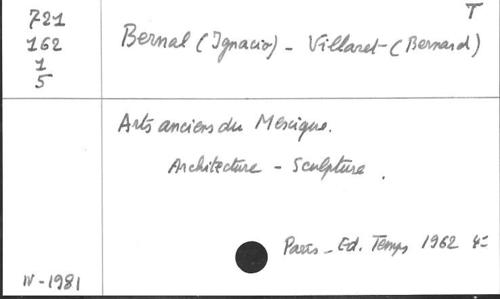 721
162
1
5
T
Bernal (Ignacio) - Villaret - (Bernard)
Arts anciens du Mexique.
Architecture - Sculpture.
Paris - Ed. Temps 1962 4=
IV-1981